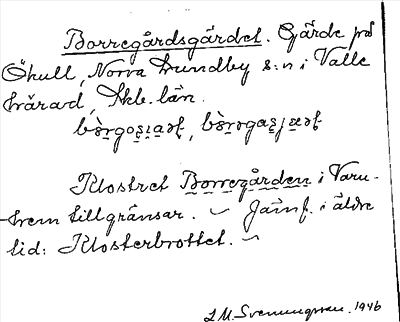 Borregårdsgärdet. Gärde på
Ökull, Norra Lundby s:n i Valle
härad, Skb. län.
Klostret Borregården i Varn-
hem tillgränsar. — Jämf. i äldre
tid: Klosterbrottet. —
S. M. Svenungsson. 1946